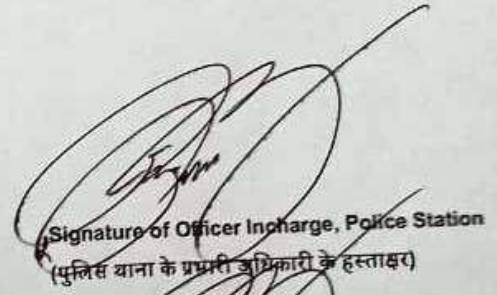 Signature of Officer Incharge, Police Station
(पुलिस थाना के प्रभारी अधिकारी के हस्ताक्षर)